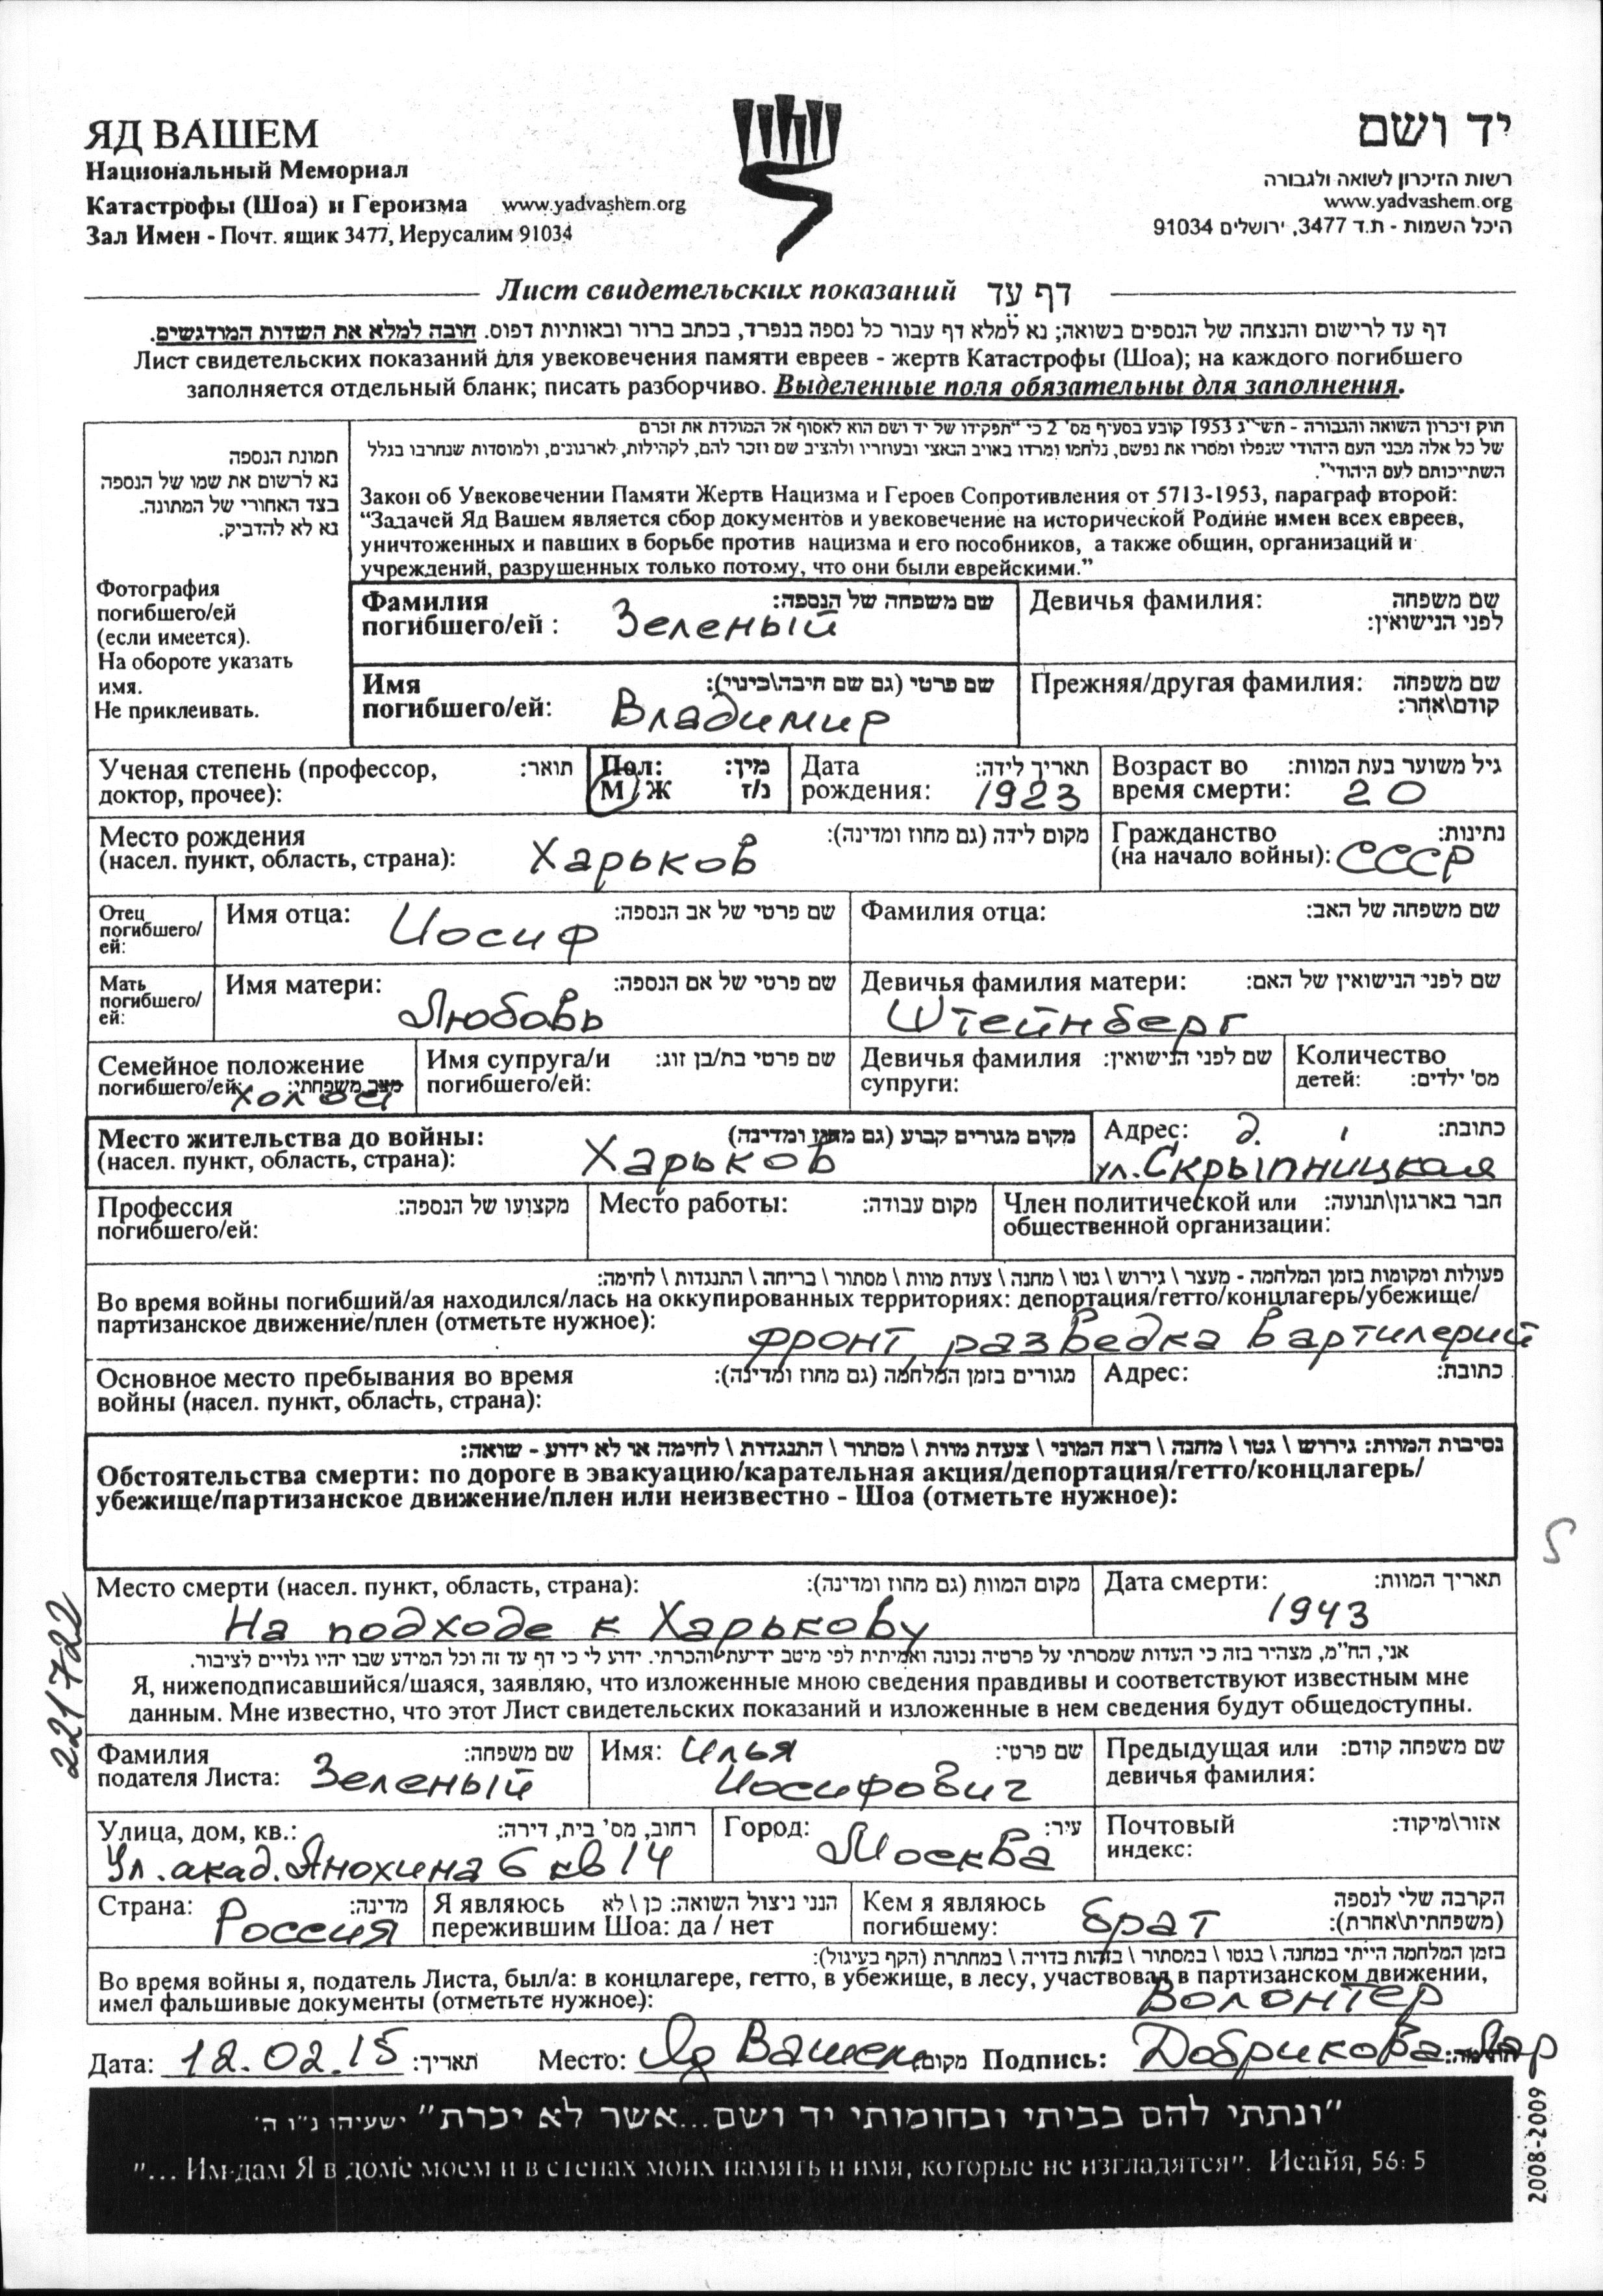 ЯД ВАШЕМ
Национальный Мемориал
Катастрофы (Шоа) и Героизма www.yadvashem.org
Зал Имен - Почт. ящик 3477, Иерусалим 91034
יד ושם
רשות הזיכרון לשואה ולגבורה
www.yadvashem.org
היכל השמות - ת.ד 3477, ירושלים 91034
Лист свидетельских показаний דף עד
דף עד לרישום והנצחה של הנספים בשואה; נא למלא דף עבור כל נספה בנפרד, בכתב ברור ובאותיות דפוס. חובה למלא את השדות המודגשים.
Лист свидетельских показаний для увековечения памяти евреев - жертв Катастрофы (Шоа); на каждого погибшего
заполняется отдельный бланк; писать разборчиво. Выделенные поля обязательны для заполнения.
תמונת הנספה
נא לרשום את שמו של הנספה
בצד האחורי של התמונה.
נא לא להדביק.
Фотография
погибшего/ей
(если имеется).
На обороте указать
имя.
Не приклеивать.
חוק זיכרון השואה והגבורה - תשי"ג 1953 קובע בסעיף מס' 2 כי "תפקידו של יד ושם הוא לאסוף אל המולדת את זכרם
של כל אלה מבני העם היהודי שנפלו ומסרו את נפשם, נלחמו ומרדו באויב הנאצי ובעוזריו ולהציב שם וזכר להם, לקהילות, לארגונים, ולמוסדות שנחרבו בגלל
השתייכותם לעם היהודי".
Закон об Увековечении Памяти Жертв Нацизма и Героев Сопротивления от 5713-1953, параграф второй:
“Задачей Яд Вашем является сбор документов и увековечение на исторической Родине имен всех евреев,
уничтоженных и павших в борьбе против нацизма и его пособников, а также общин, организаций и
учреждений, разрушенных только потому, что они были еврейскими.”
Фамилия שם משפחה של הנספה:
погибшего/ей : Зеленый
Девичья фамилия: שם משפחה
לפני הנישואין:
Имя שם פרטי (גם שם חיבה\כינוי):
погибшего/ей: Владимир
Прежняя/другая фамилия: שם משפחה
קודם\אחר:
Ученая степень (профессор, תואר:
доктор, прочее):
Пол: מין:
М/Ж נ/ז
Дата תאריך לידה:
рождения: 1923
Возраст во גיל משוער בעת המוות:
время смерти: 20
Место рождения מקום לידה (גם מחוז ומדינה):
(насел. пункт, область, страна): Харьков
Гражданство נתינות:
(на начало войны): СССР
Отец
погибшего/
ей:
Имя отца: שם פרטי של אב הנספה:
Иосиф
Фамилия отца: שם משפחה של האב:
Мать
погибшего/
ей:
Имя матери: שם פרטי של אם הנספה:
Любовь
Девичья фамилия матери: שם לפני הנישואין של האם:
Штейнберг
Семейное положение
погибшего/ей: מצב משפחתי:
Имя супруга/и שם פרטי בת/בן זוג:
погибшего/ей:
Девичья фамилия שם לפני הנישואין:
супруги:
Количество
детей: מס' ילדים:
Место жительства до войны: מקום מגורים קבוע (גם מחוז ומדינה)
(насел. пункт, область, страна): Харьков
Адрес: д. 1 כתובת:
ул. Скрыпницкая
Профессия מקצועו של הנספה:
погибшего/ей:
Место работы: מקום עבודה:
Член политической или חבר בארגון\תנועה:
общественной организации:
פעולות ומקומות בזמן המלחמה - מעצר \ גירוש \ גטו \ מחנה \ צעדת מוות \ מסתור \ בריחה \ התנגדות \ לחימה:
Во время войны погибший/ая находился/лась на оккупированных территориях: депортация/гетто/концлагерь/убежище/
партизанское движение/плен (отметьте нужное):
фронт, разведка в артилерий
Основное место пребывания во время מגורים בזמן המלחמה (גם מחוז ומדינה):
войны (насел. пункт, область, страна):
Адрес: כתובת:
נסיבות המוות: גירוש \ גטו \ מחנה \ רצח המוני \ צעדת מוות \ מסתור \ התנגדות \ לחימה או לא ידוע - שואה:
Обстоятельства смерти: по дороге в эвакуацию/карательная акция/депортация/гетто/концлагерь/
убежище/партизанское движение/плен или неизвестно - Шоа (отметьте нужное):
Место смерти (насел. пункт, область, страна): מקום המוות (גם מחוז ומדינה):
На подходе к Харькову
Дата смерти: תאריך המוות:
1943
אני, הח"מ, מצהיר בזה כי העדות שמסרתי על פרטיה נכונה ואמיתית לפי מיטב ידיעתי והכרתי. ידוע לי כי דף עד זה וכל המידע שבו יהיו גלויים לציבור.
Я, нижеподписавшийся/шаяся, заявляю, что изложенные мною сведения правдивы и соответствуют известным мне
данным. Мне известно, что этот Лист свидетельских показаний и изложенные в нем сведения будут общедоступны.
Фамилия שם משפחה:
подателя Листа: Зеленый
Имя: Илья שם פרטי:
Иосифович
Предыдущая или שם משפחה קודם:
девичья фамилия:
Улица, дом, кв.: רחוב, מס' בית, דירה:
Ул. акад. Анохина 6 кв 14
Город: Москва עיר:
Почтовый אזור\מיקוד:
индекс:
Страна: Россия מדינה:
Я являюсь הנני ניצול השואה: כן \ לא
пережившим Шоа: да / нет
Кем я являюсь הקרבה שלי לנספה
погибшему: брат (משפחתית\אחרת):
בזמן המלחמה הייתי במחנה \ בגטו \ במסתור \ בזהות בדויה \ במחתרת (הקף בעיגול):
Во время войны я, податель Листа, был/а: в концлагере, гетто, в убежище, в лесу, участвовал в партизанском движении,
имел фальшивые документы (отметьте нужное):
Волонтер
Дата: 12.02.15 תאריך: Место: Яд Вашем מקום: Подпись: Добрикова
"ונתתי להם בביתי ובחומותי יד ושם...אשר לא יכרת" ישעיהו נ"ו ה'
"... Им дам Я в доме моем и в стенах моих память и имя, которые не изгладятся". Исайя, 56: 5
221722
2008-2009